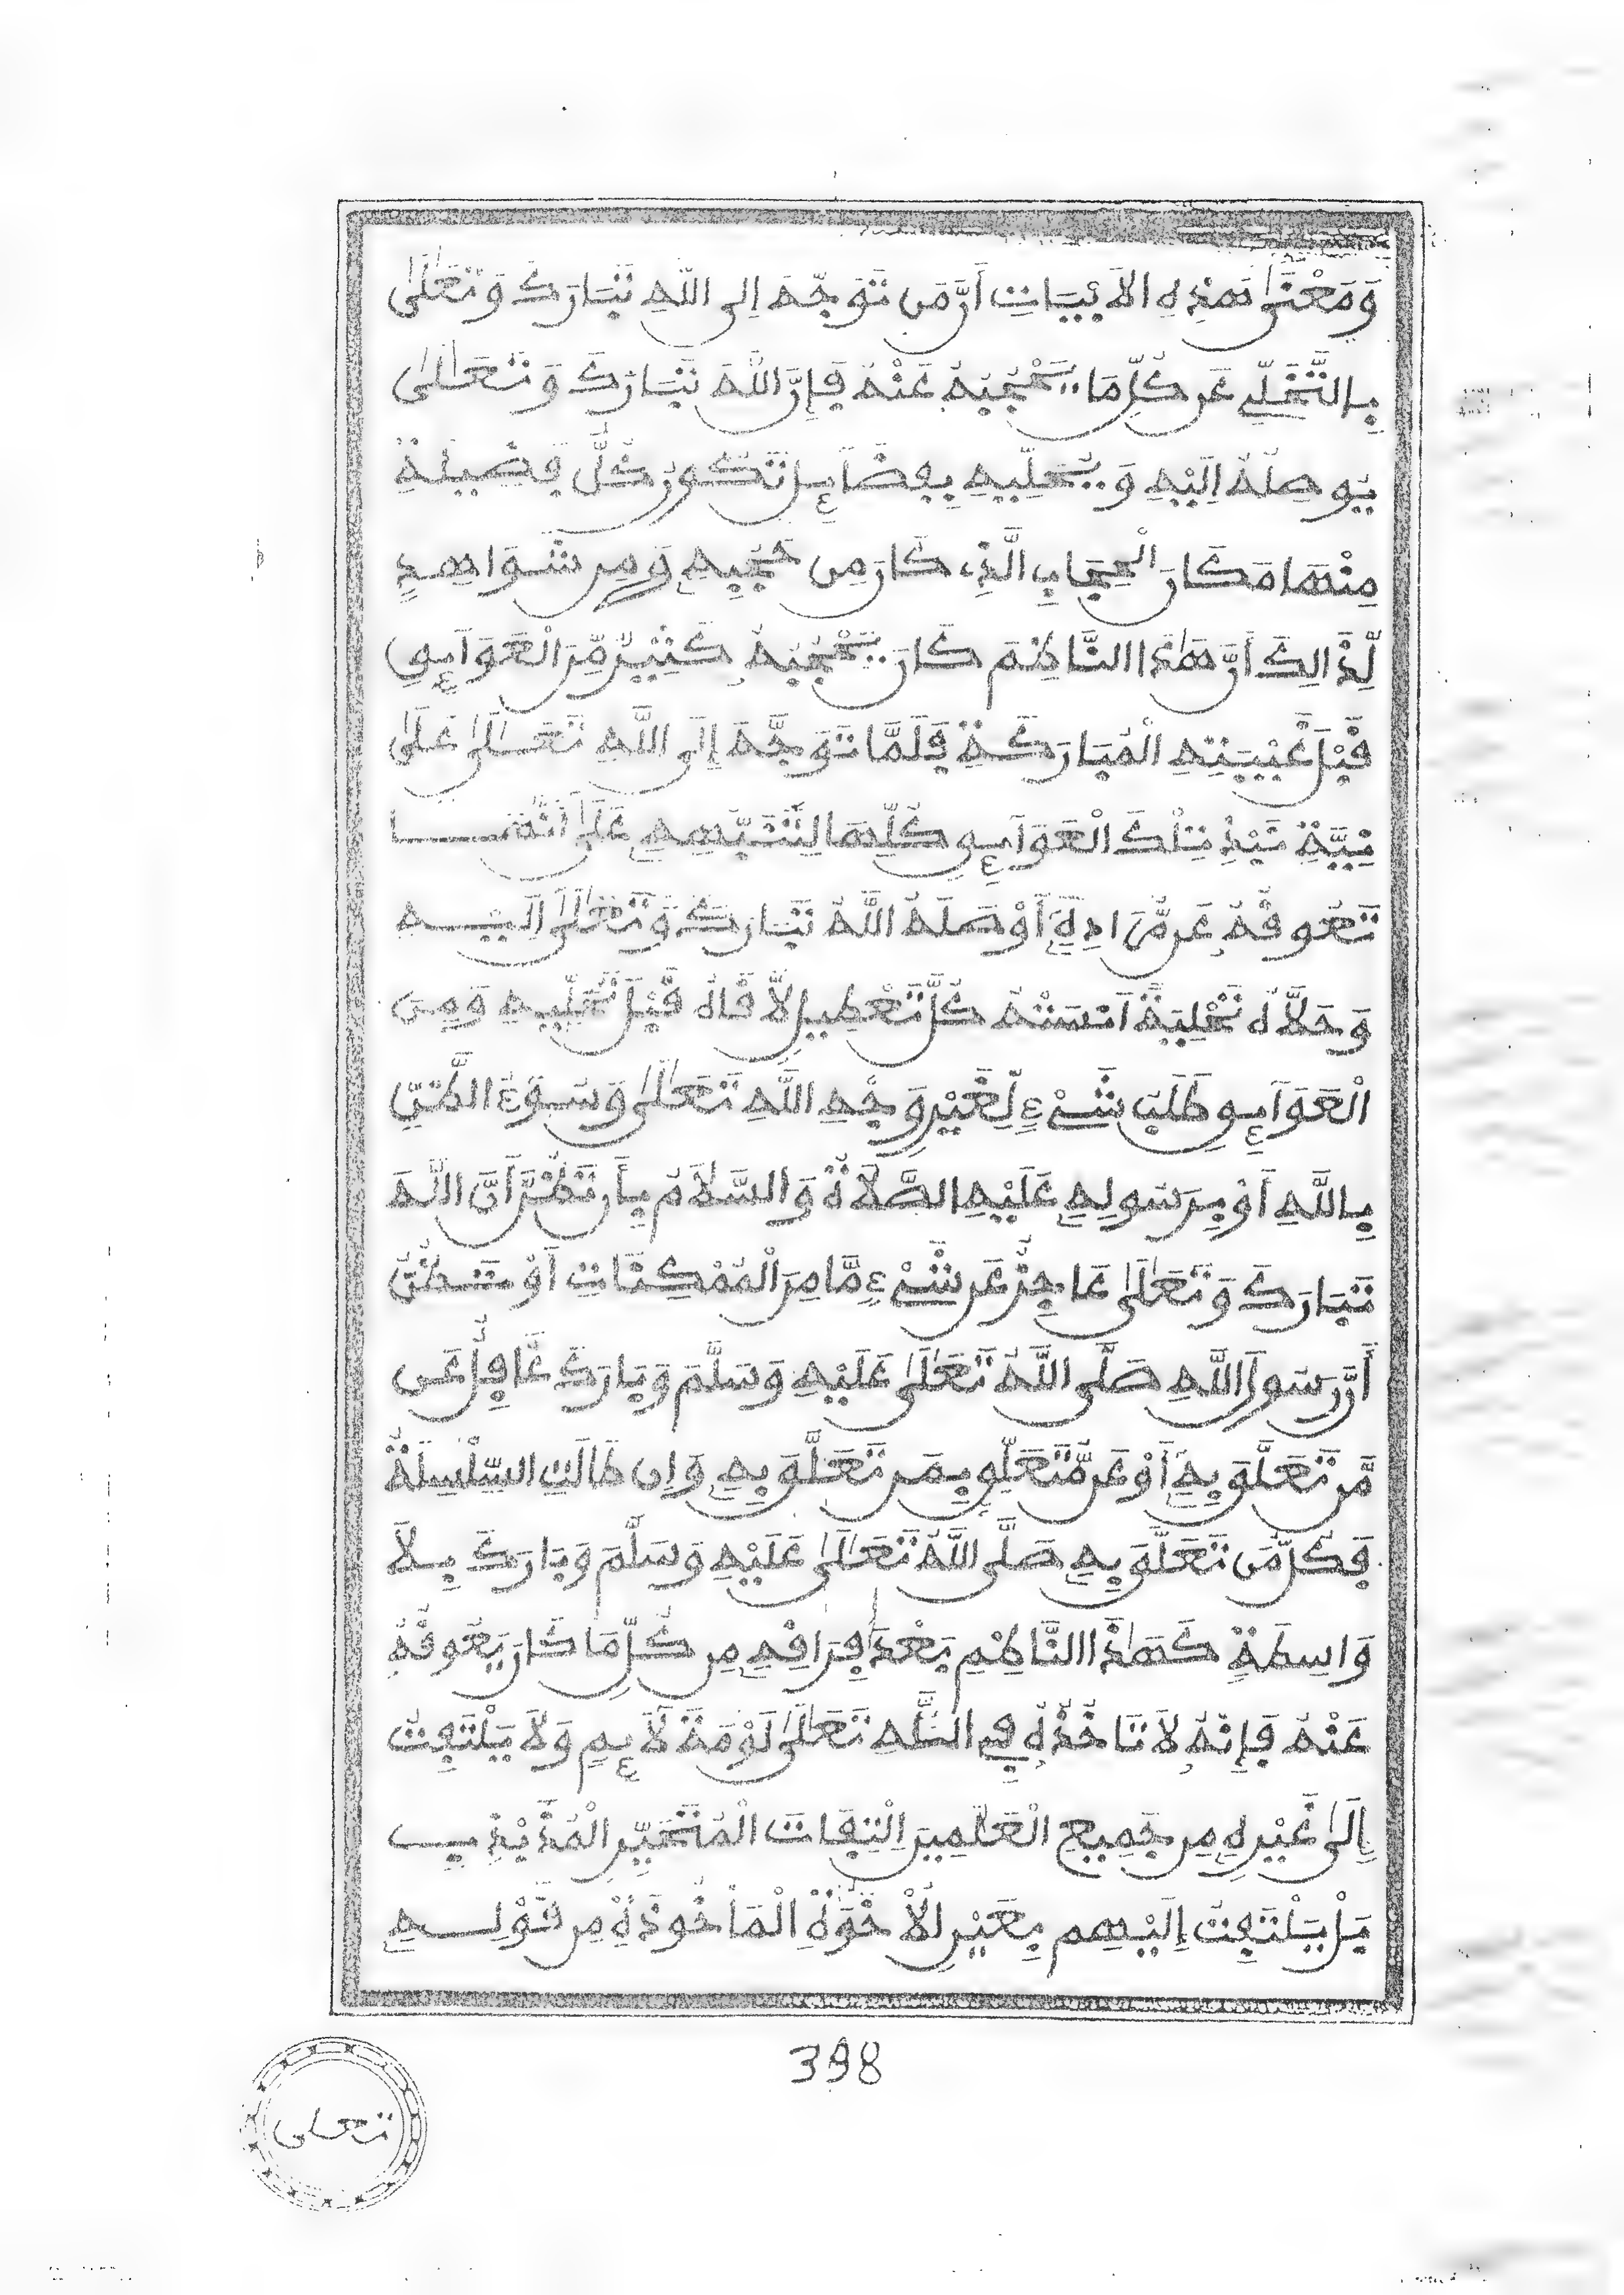 وَمَعْنَىٰ هَٰذِهِ الْأَبْيَاتِ أَنَّ مَن تَوَجَّهَ إِلَى اللَّهِ تَبَارَكَ وَتَعَالَىٰ
بِالتَّخَلِّي عَن كُلِّ مَا يَحْجُبُهُ عَنْهُ فَإِنَّ اللَّهَ تَبَارَكَ وَتَعَالَىٰ
يُوصِلُهُ إِلَيْهِ وَيُحَلِّيهِ بِفَضَائِلَ تَكُونُ كُلُّ فَضِيلَةٍ
مِنْهَا مَكَانَ الْحِجَابِ الَّذِي كَانَ مِنْ حُجُبِهِ وَمِن شَوَاهِدِ
ذَٰلِكَ أَنَّ هَٰذَا النَّاظِمَ كَانَ يَحْجُبُهُ كَثِيرٌ مِّنَ الْعَوَائِقِ
قَبْلَ غَيْبَتِهِ الْمُبَارَكَةِ فَلَمَّا تَوَجَّهَ إِلَى اللَّهِ تَعَالَىٰ عَلَىٰ
نِيَّةِ نَبْذِ تِلْكَ الْعَوَائِقِ كُلِّهَا لِتَنَبُّهِهِ عَلَىٰ أَنَّهَا
تَعُوقُهُ عَن مُّرَادِهِ أَوْصَلَهُ اللَّهُ تَبَارَكَ وَتَعَالَىٰ إِلَيْهِ
وَحَلَّاهُ تَحْلِيَةً أَنْسَتْهُ كُلَّ تَعْطِيلٍ لَّاقَاهُ قَبْلَ تَحَلِّيهِ وَمِنَ
الْعَوَائِقِ طَلَبُ شَيْءٍ لِّغَيْرِ وَجْهِ اللَّهِ تَعَالَىٰ وَسُوءُ الظَّنِّ
بِاللَّهِ أَوْ بِرَسُولِهِ عَلَيْهِ الصَّلَاةُ وَالسَّلَامُ بِأَن تَظُنَّ أَنَّ اللَّهَ
تَبَارَكَ وَتَعَالَىٰ عَاجِزٌ عَن شَيْءٍ مَّا مِنَ الْمُمْكِنَاتِ أَوْ تَظُنَّ
أَنَّ رَسُولَ اللَّهِ صَلَّى اللَّهُ تَعَالَىٰ عَلَيْهِ وَسَلَّمَ وَبَارَكَ غَافِلٌ عَن
مَّن تَعَلَّقَ بِهِ أَوْ عَن مُّتَعَلِّقٍ بِمَن تَعَلَّقَ بِهِ وَإِن طَالَتِ السِّلْسِلَةُ
فَكُلُّ مَن تَعَلَّقَ بِهِ صَلَّى اللَّهُ تَعَالَىٰ عَلَيْهِ وَسَلَّمَ وَبَارَكَ بِلَا
وَاسِطَةٍ كَهَٰذَا النَّاظِمِ بَعْدَ فِرَاقِهِ مِن كُلِّ مَا كَانَ يَعُوقُهُ
عَنْهُ فَإِنَّهُ لَا تَأْخُذُهُ فِي اللَّهِ تَعَالَىٰ لَوْمَةُ لَائِمٍ وَلَا يَلْتَفِتُ
إِلَىٰ غَيْرِهِ مِن جَمِيعِ الْعَالَمِينَ الْتِفَاتَ الْمُتَحَيِّرِ الْمُذَبْذَبِ
بَلْ يَلْتَفِتُ إِلَيْهِم بِعَيْنِ الْأُخُوَّةِ الْمَأْخُوذَةِ مِن قَوْلِهِ
398
تعلى